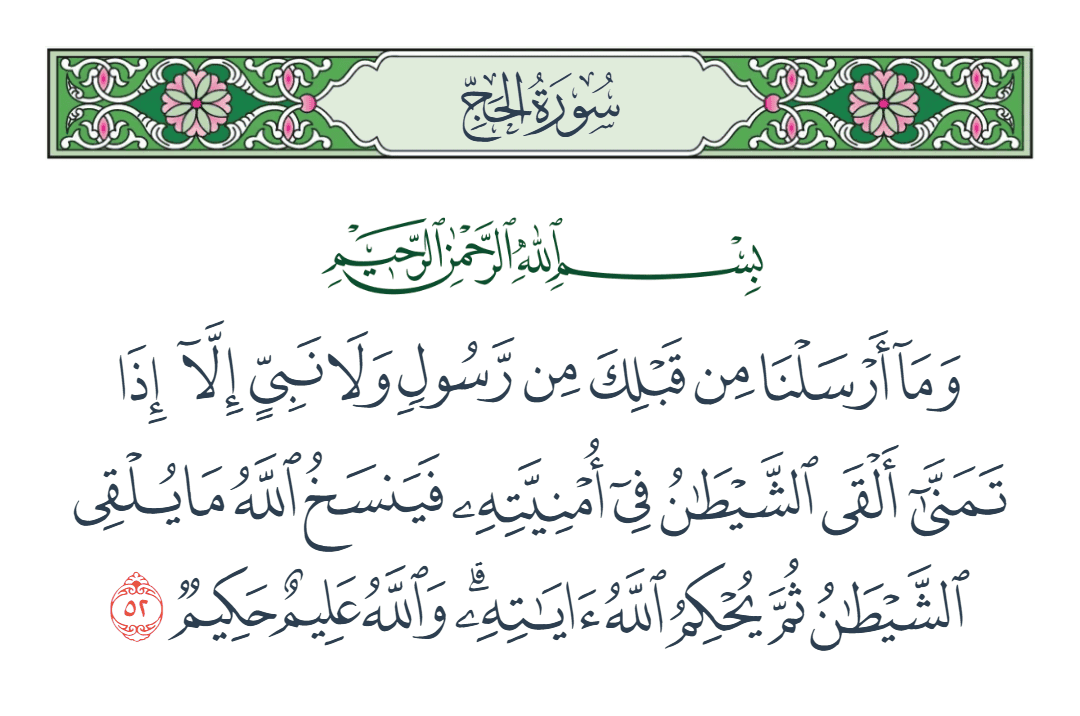 سُورَةُ الحَجِّ
بِسْمِ ٱللَّهِ ٱلرَّحْمَٰنِ ٱلرَّحِيمِ
وَمَآ أَرْسَلْنَا مِن قَبْلِكَ مِن رَّسُولٍ وَلَا نَبِيٍّ إِلَّآ إِذَا
تَمَنَّىٰٓ أَلْقَى ٱلشَّيْطَٰنُ فِىٓ أُمْنِيَّتِهِۦ فَيَنسَخُ ٱللَّهُ مَا يُلْقِى
ٱلشَّيْطَٰنُ ثُمَّ يُحْكِمُ ٱللَّهُ ءَايَٰتِهِۦ ۗ وَٱللَّهُ عَلِيمٌ حَكِيمٌ ٥٢